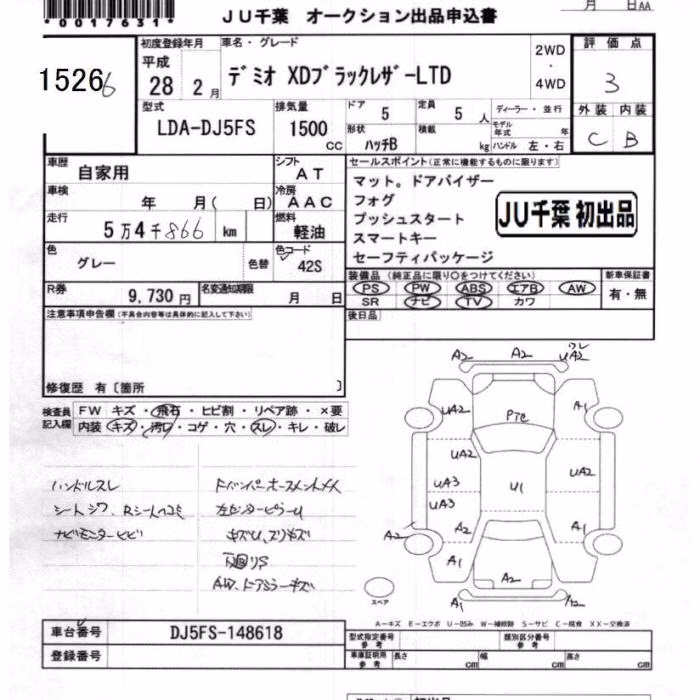 *0017631*
月 日AA
JU千葉 オークション出品申込書
15266
初度登録年月
平成
28 2月
車名・グレード
デミオ XDブラックレザーLTD
2WD
・
4WD
評価点
3
型式
LDA-DJ5FS
排気量
1500 CC
ドア 5
定員 5 人
形状 ハッチB
積載 kg
ディーラー・並行
モデル年式 年
ハンドル 左・右
外装 内装
C B
車歴 自家用
シフト AT
車検 年 月( 日)
冷房 AAC
走行 5万4千866 km
燃料 軽油
色 グレー 色替
色コード 42S
R券 9,730円
名変通知期限 月 日
セールスポイント(正常に機能するものに限ります)
マット。ドアバイザー
フォグ
プッシュスタート
スマートキー
セーフティパッケージ
JU千葉 初出品
装備品 (純正品に限り○をつけてください)
PS PW ABS エアB AW
SR ナビ TV カワ
新車保証書
有・無
後日品
注意事項申告欄(不具合内容等は具体的に記入して下さい)
修復歴 有〔箇所 〕
検査員記入欄
FW キズ・飛石・ヒビ割・リペア跡・×要
内装 キズ・汚レ・コゲ・穴・スレ・キレ・破レ
ハンドルスレ
シートシワ、Rシートヘコミ
ナビモニターヒビ
左センターピラーU
キズU、スリキズ
AW、ドアミラーキズ
A2 A2 UA2
UA2 A1
UA2 UA2
UA3 U1
UA3
A2 A2 A1
A1 A2
A1
スペア
A－キズ E－エクボ U－凹み W－補修跡 S－サビ C－腐食 XX－交換済
車台番号 DJ5FS-148618
登録番号
型式指定番号 参考
類別区分番号 参考
車庫証明用 参考
長さ cm 幅 cm 高さ cm
初出品